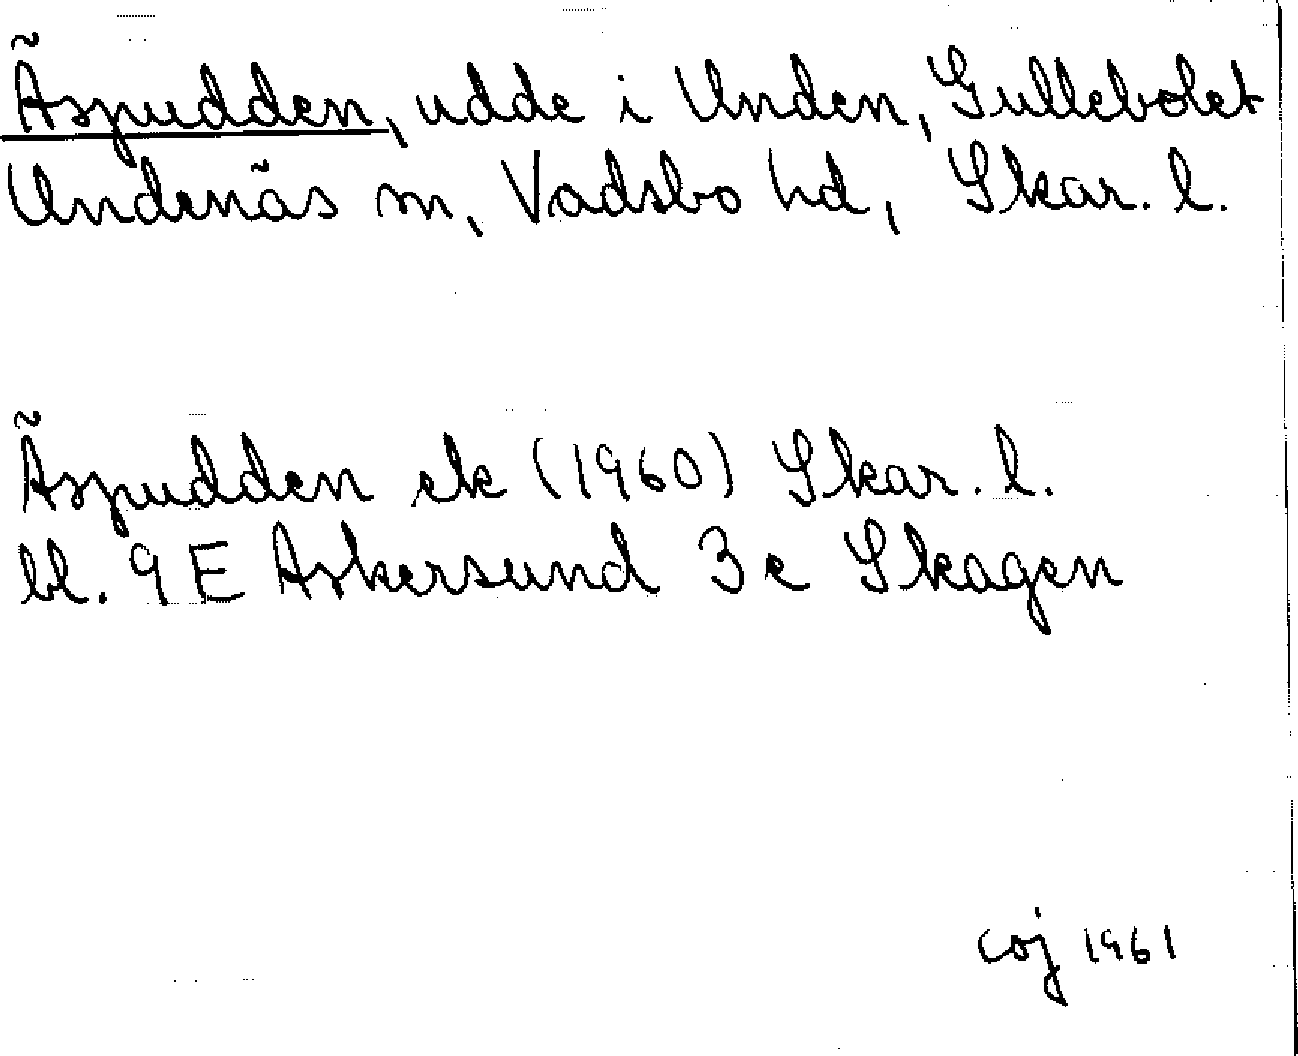 Äspudden, udde i Unden, Gullebolet
Undenäs sn, Vadsbo hd, Skar. l.
Äspudden ek (1960) Skar. l.
bl. 9 E Askersund 3 c Skagen
coj 1961